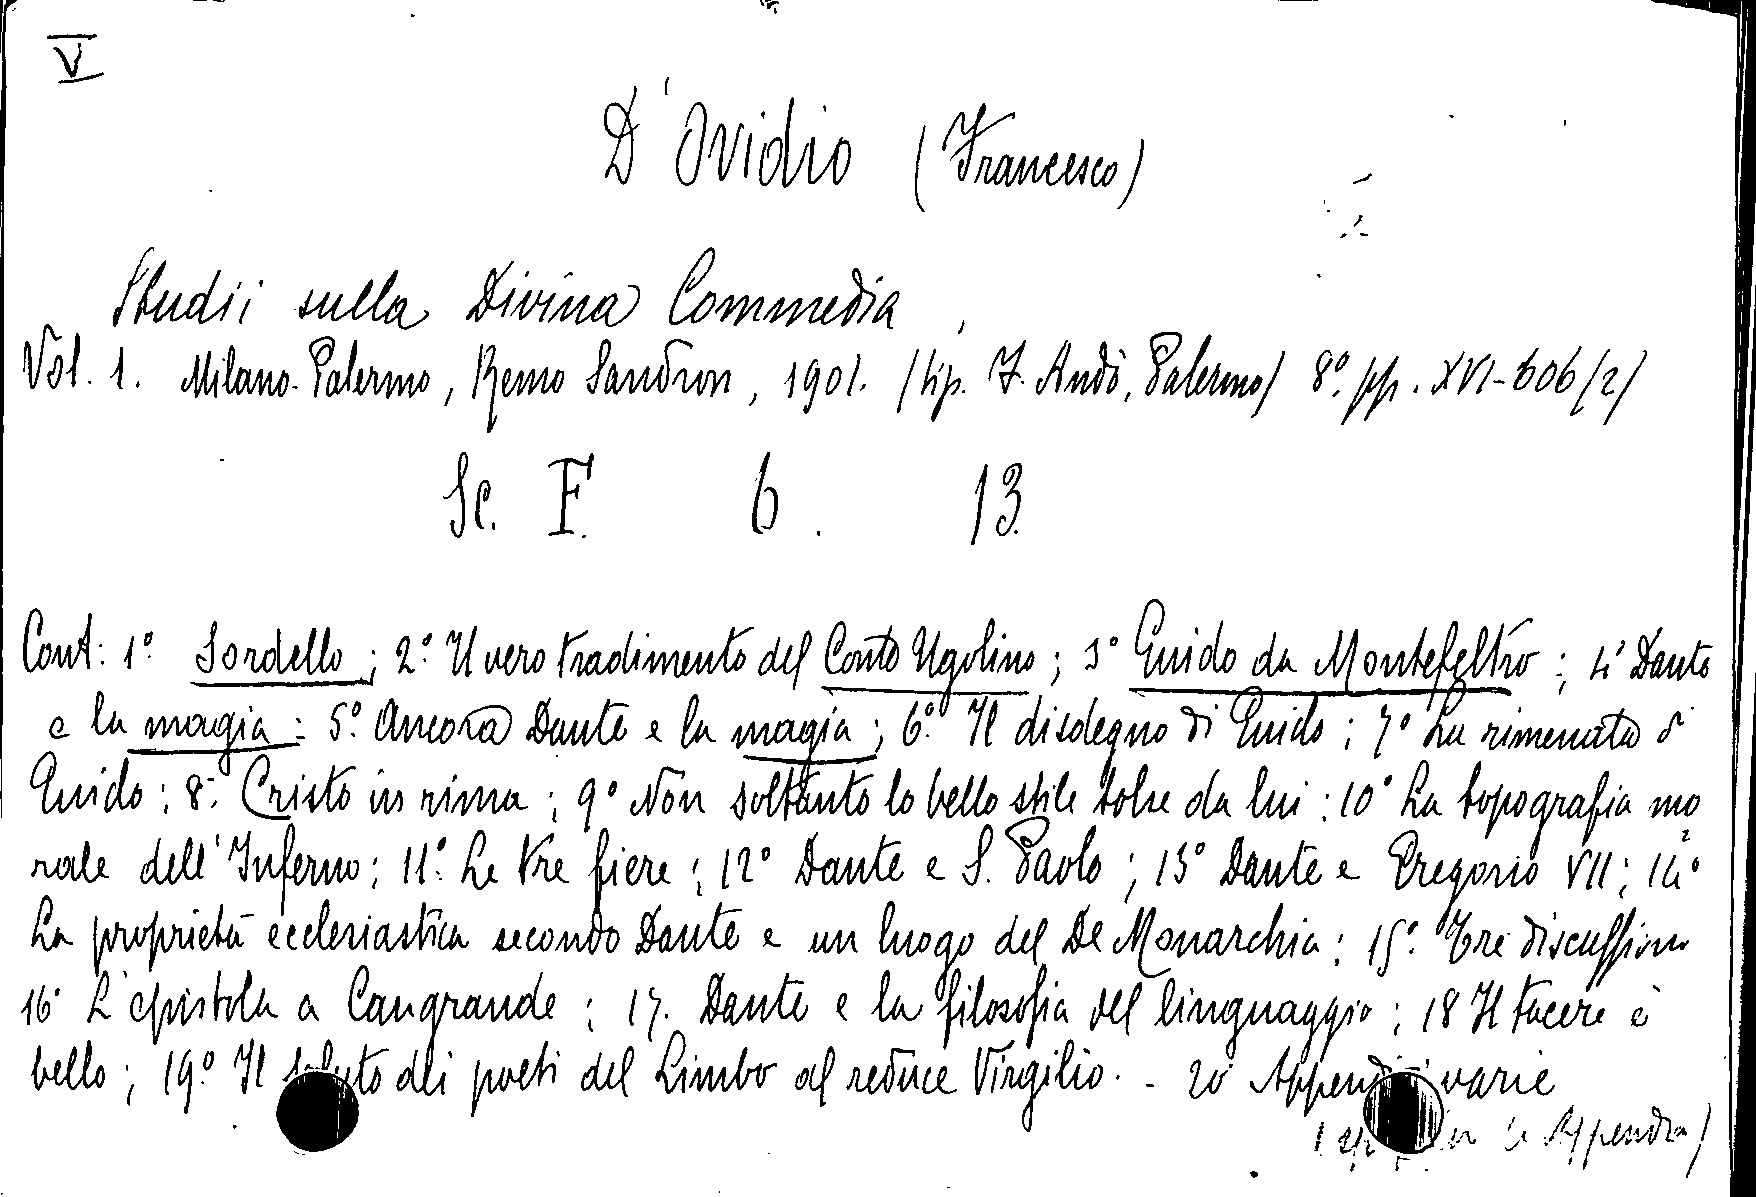 V
D'Ovidio (Francesco)
Studii sulla Divina Commedia
Vol. 1. Milano-Palermo, Remo Sandron, 1901. (tip. F. Andò, Palermo) 8.° pp. XVI-606 (2)
Sc. F. 6. 13
Cont: 1° Sordello; 2.° Il vero tradimento del Conte Ugolino; 3° Guido da Montefeltro; 4° Dante
e la magia: 5.° Ancora Dante e la magia; 6.° Il disdegno di Guido; 7° La rimenata di
Guido; 8.° Cristo in rima; 9° Non soltanto lo bello stile tolse da lui; 10° La topografia mo
rale dell'Inferno; 11.° Le tre fiere; 12° Dante e S. Paolo; 13° Dante e Gregorio VII; 14°
La proprietà ecclesiastica secondo Dante e un luogo del De Monarchia; 15.° Tre discussioni
16° L'epistola a Cangrande; 17. Dante e la filosofia del linguaggio; 18 Il tacere è
bello; 19.° Il saluto dei poeti del Limbo al reduce Virgilio. - 20 Appendici varie
Appendice)